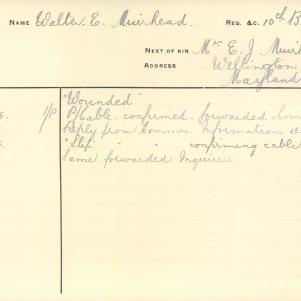 NAME Walter. E. Muirhead. REG. &C. 10th B
NEXT OF KIN Mr E. J. Muir
ADDRESS Wellington
Maryland
"Wounded"
S. 1/P Pcable. confirmed. forwarded Com
Reply from Commr Information
S. "Slip" " " confirming cable
Same forwarded Inquirer